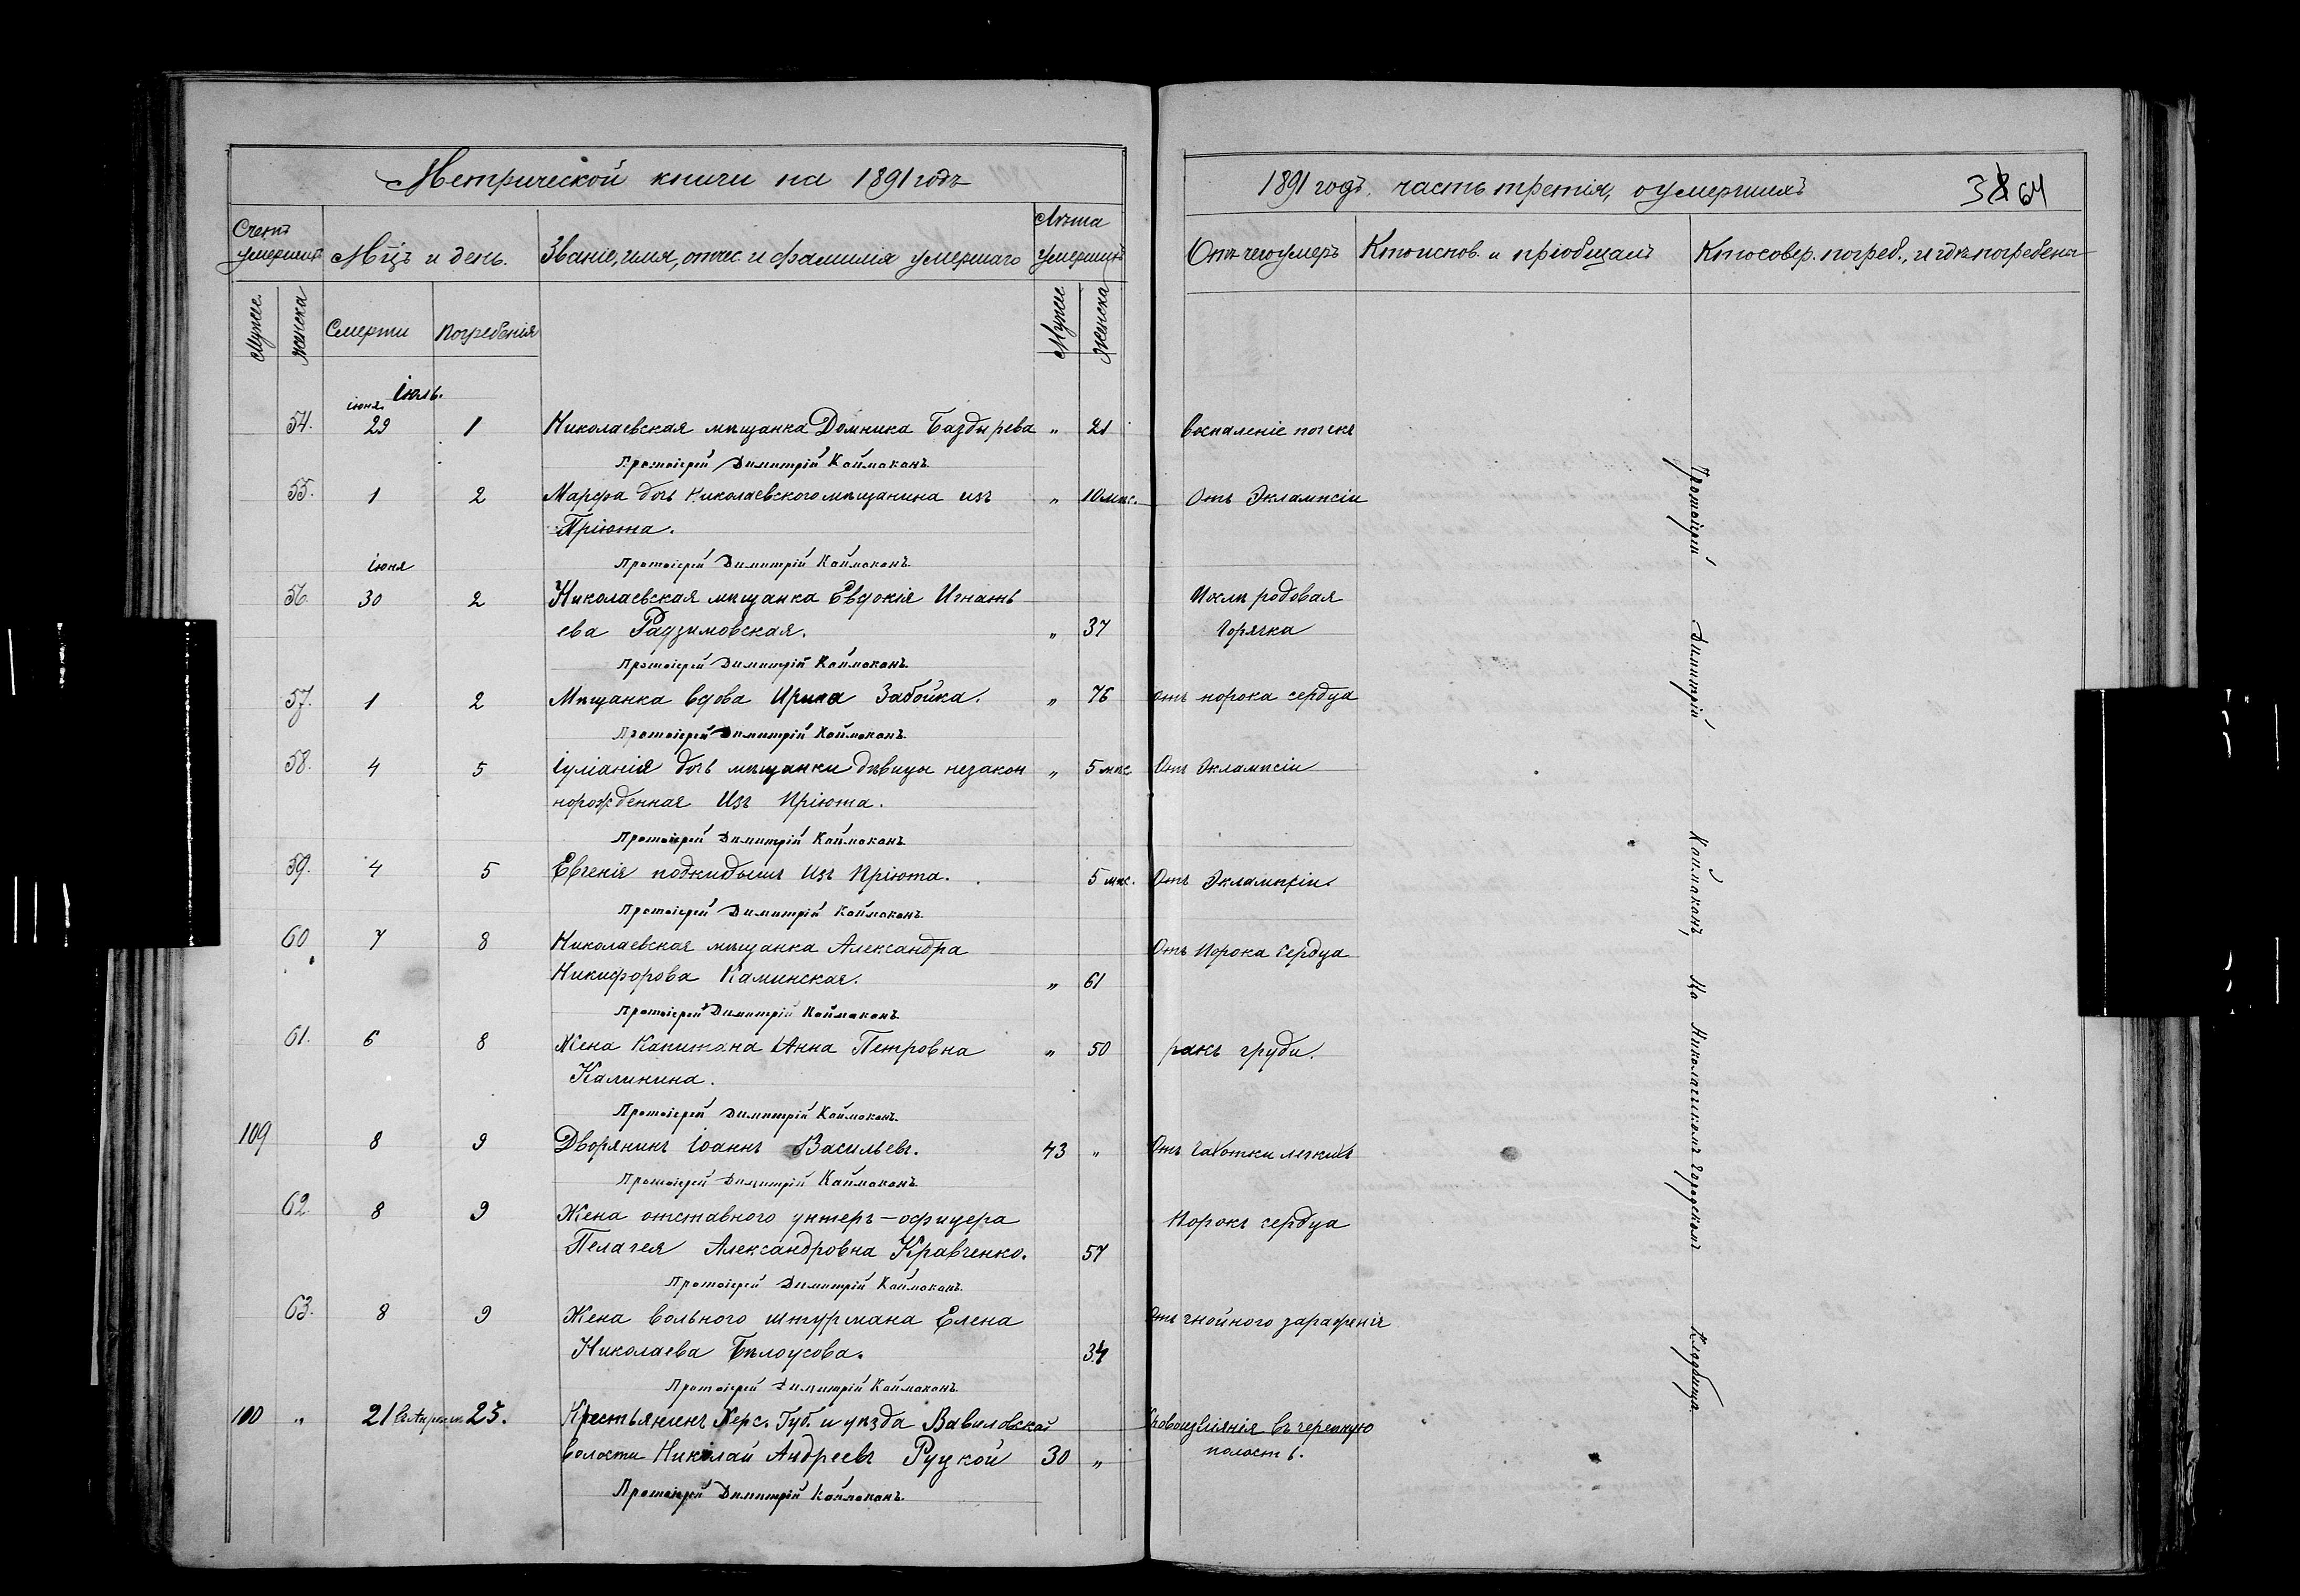 Метрической книги на 1891 годъ
Счетъ умершихъ
Мѣцъ и день.
Званіе, имя, отчес. и фамилия умершаго
Лѣта умершихъ
Мужес.
Женска
Смерти
Погребенія
Мужес
Женска
Іюль.
Іюня
54. 29 1 Николаевская мѣщанка Домника Баздырева „ 21
Протоіерей Димитрій Каймаканъ.
55. 1 2 Марфа дочь Николаевского мѣщанина изъ „ 10 мѣс.
Пріюта.
Протоіерей Димитрій Каймаканъ.
Іюня
56. 30 2 Николаевская мѣщанка Евдокія Игнать
ева Радзимовская. „ 37
Протоіерей Димитрій Каймаканъ.
57. 1 2 Мѣщанка вдова Ирина Забойка. „ 76
Протоіерей Димитрій Каймаканъ.
58. 4 5 Іуліанія дочь мѣщанки дѣвицы незакон „ 5 мѣс
норожденная Изъ Пріюта.
Протоіерей Димитрій Каймаканъ.
59. 4 5 Евгенія подкидышъ Изъ Пріюта. 5 мѣс.
Протоіерей Димитрій Каймаканъ.
60 7 8 Николаевская мѣщанка Александра
Никифорова Каминская. „ 61
Протоіерей Димитрій Каймаканъ.
61. 6 8 Жена Капитана Анна Петровна „ 50
Калинина.
Протоіерей Димитрій Каймаканъ.
109 8 9 Дворянинъ Іоаннъ Васильевъ. 43 „
Протоіерей Димитрій Каймаканъ.
62. 8 9 Жена отставного унтеръ-офицера
Пелагея Александровна Кравченко. 57
Протоіерей Димитрій Каймаканъ.
63. 8 9 Жена вольного штурмана Елена
Николаева Бѣлоусова. 34
Протоіерей Димитрій Каймаканъ.
110 „ 21 Апреля 23. Крестьянинъ Херс. Губ. и уѣзда Вавиловской
волости Николай Андреевъ Руцкой 30 „
Протоіерей Димитрій Каймаканъ.
1891 годъ. часть третія, о умершихъ
38 64
Отъ чего умеръ
Кто испов. и пріобщалъ
Кто совер. погреб., и гдѣ погребены
воспаленіе почекъ
Отъ Эклампсіи
Послѣ родовая
Горячка
отъ порока сердца
Отъ Эклампсіи
Отъ Эклампсіи.
Отъ Порока Сердца
ракъ груди.
Отъ чахотки легкихъ
Порокъ сердца
Отъ гнойного зараженія
Кровоизліянія въ черепную
полость.
Протоіерей Димитрій Каймаканъ, На Николаевскомъ Городскомъ Кладбище.